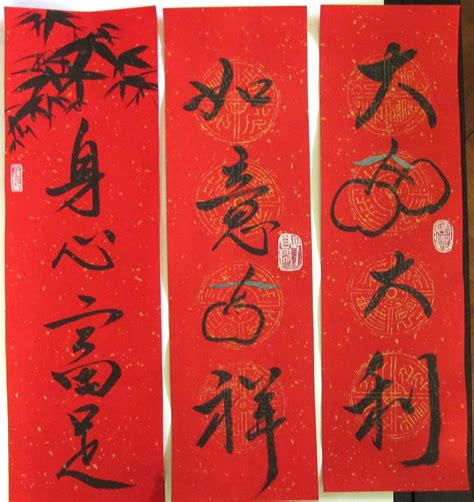 大吉大利
如意吉祥
身心富足